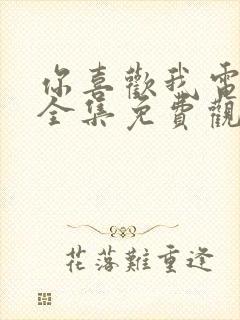 你喜歡我電
全集免費觀
花落難重逢